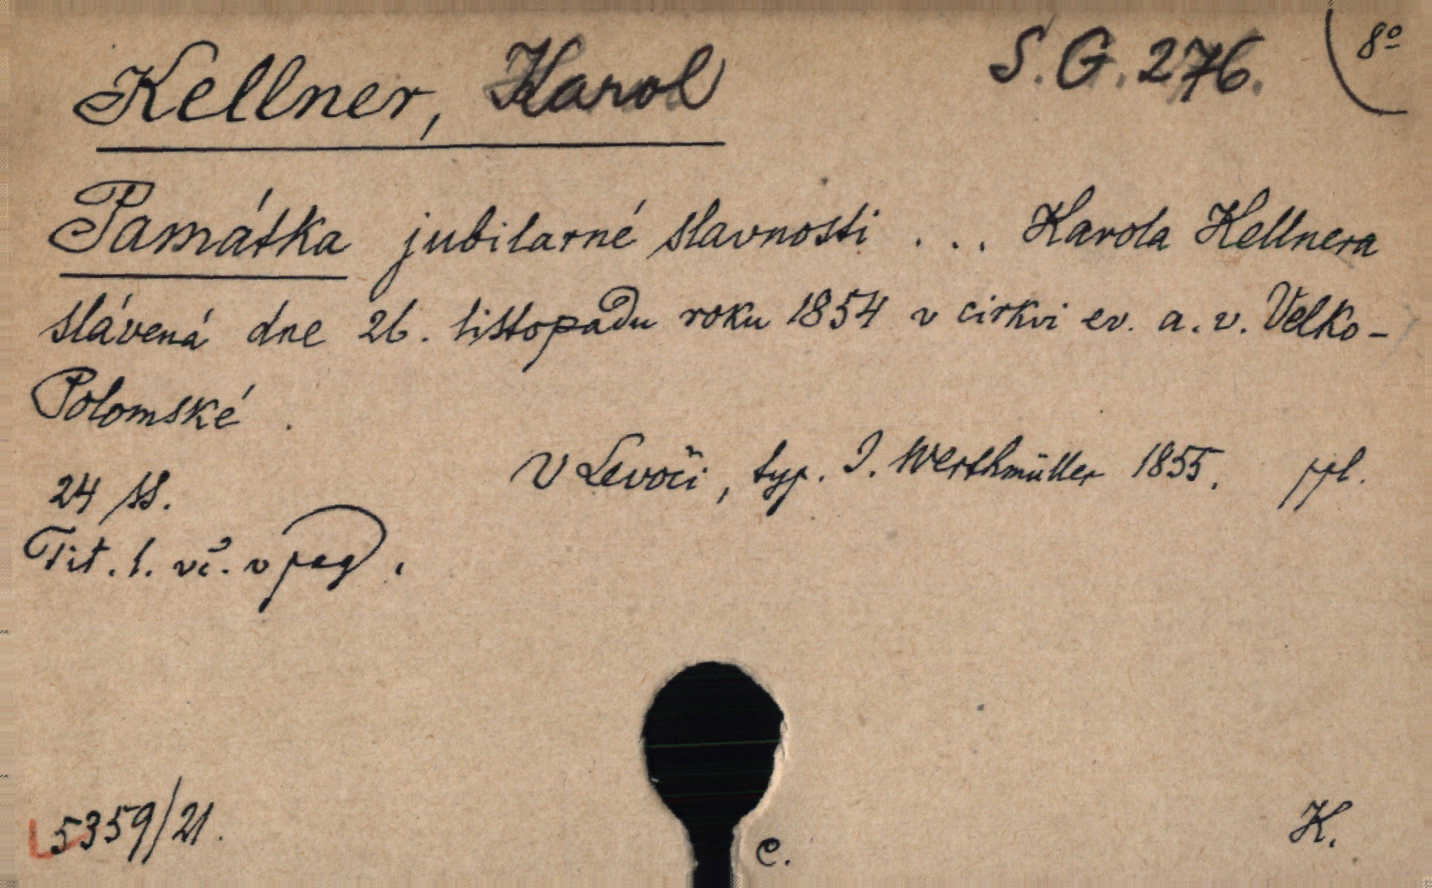 Kellner, Karol S. G. 276. 8º
Památka jubilarné slavnosti ... Karola Kellnera
slávená dne 26. listopadu roku 1854 v cirkvi ev. a. v. Velko-
Polomské.
V Levoči, typ. J. Werthmüller 1855. ppl.
24 ss.
Tit. l. vč. v pag.
5359/21.
c.
K.